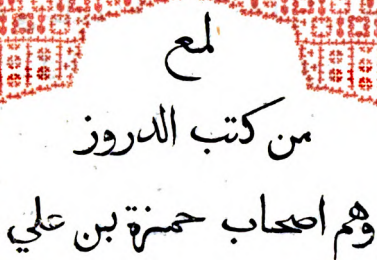 لمع
من كتب الدروز
وهم اصحاب حمزة بن علي